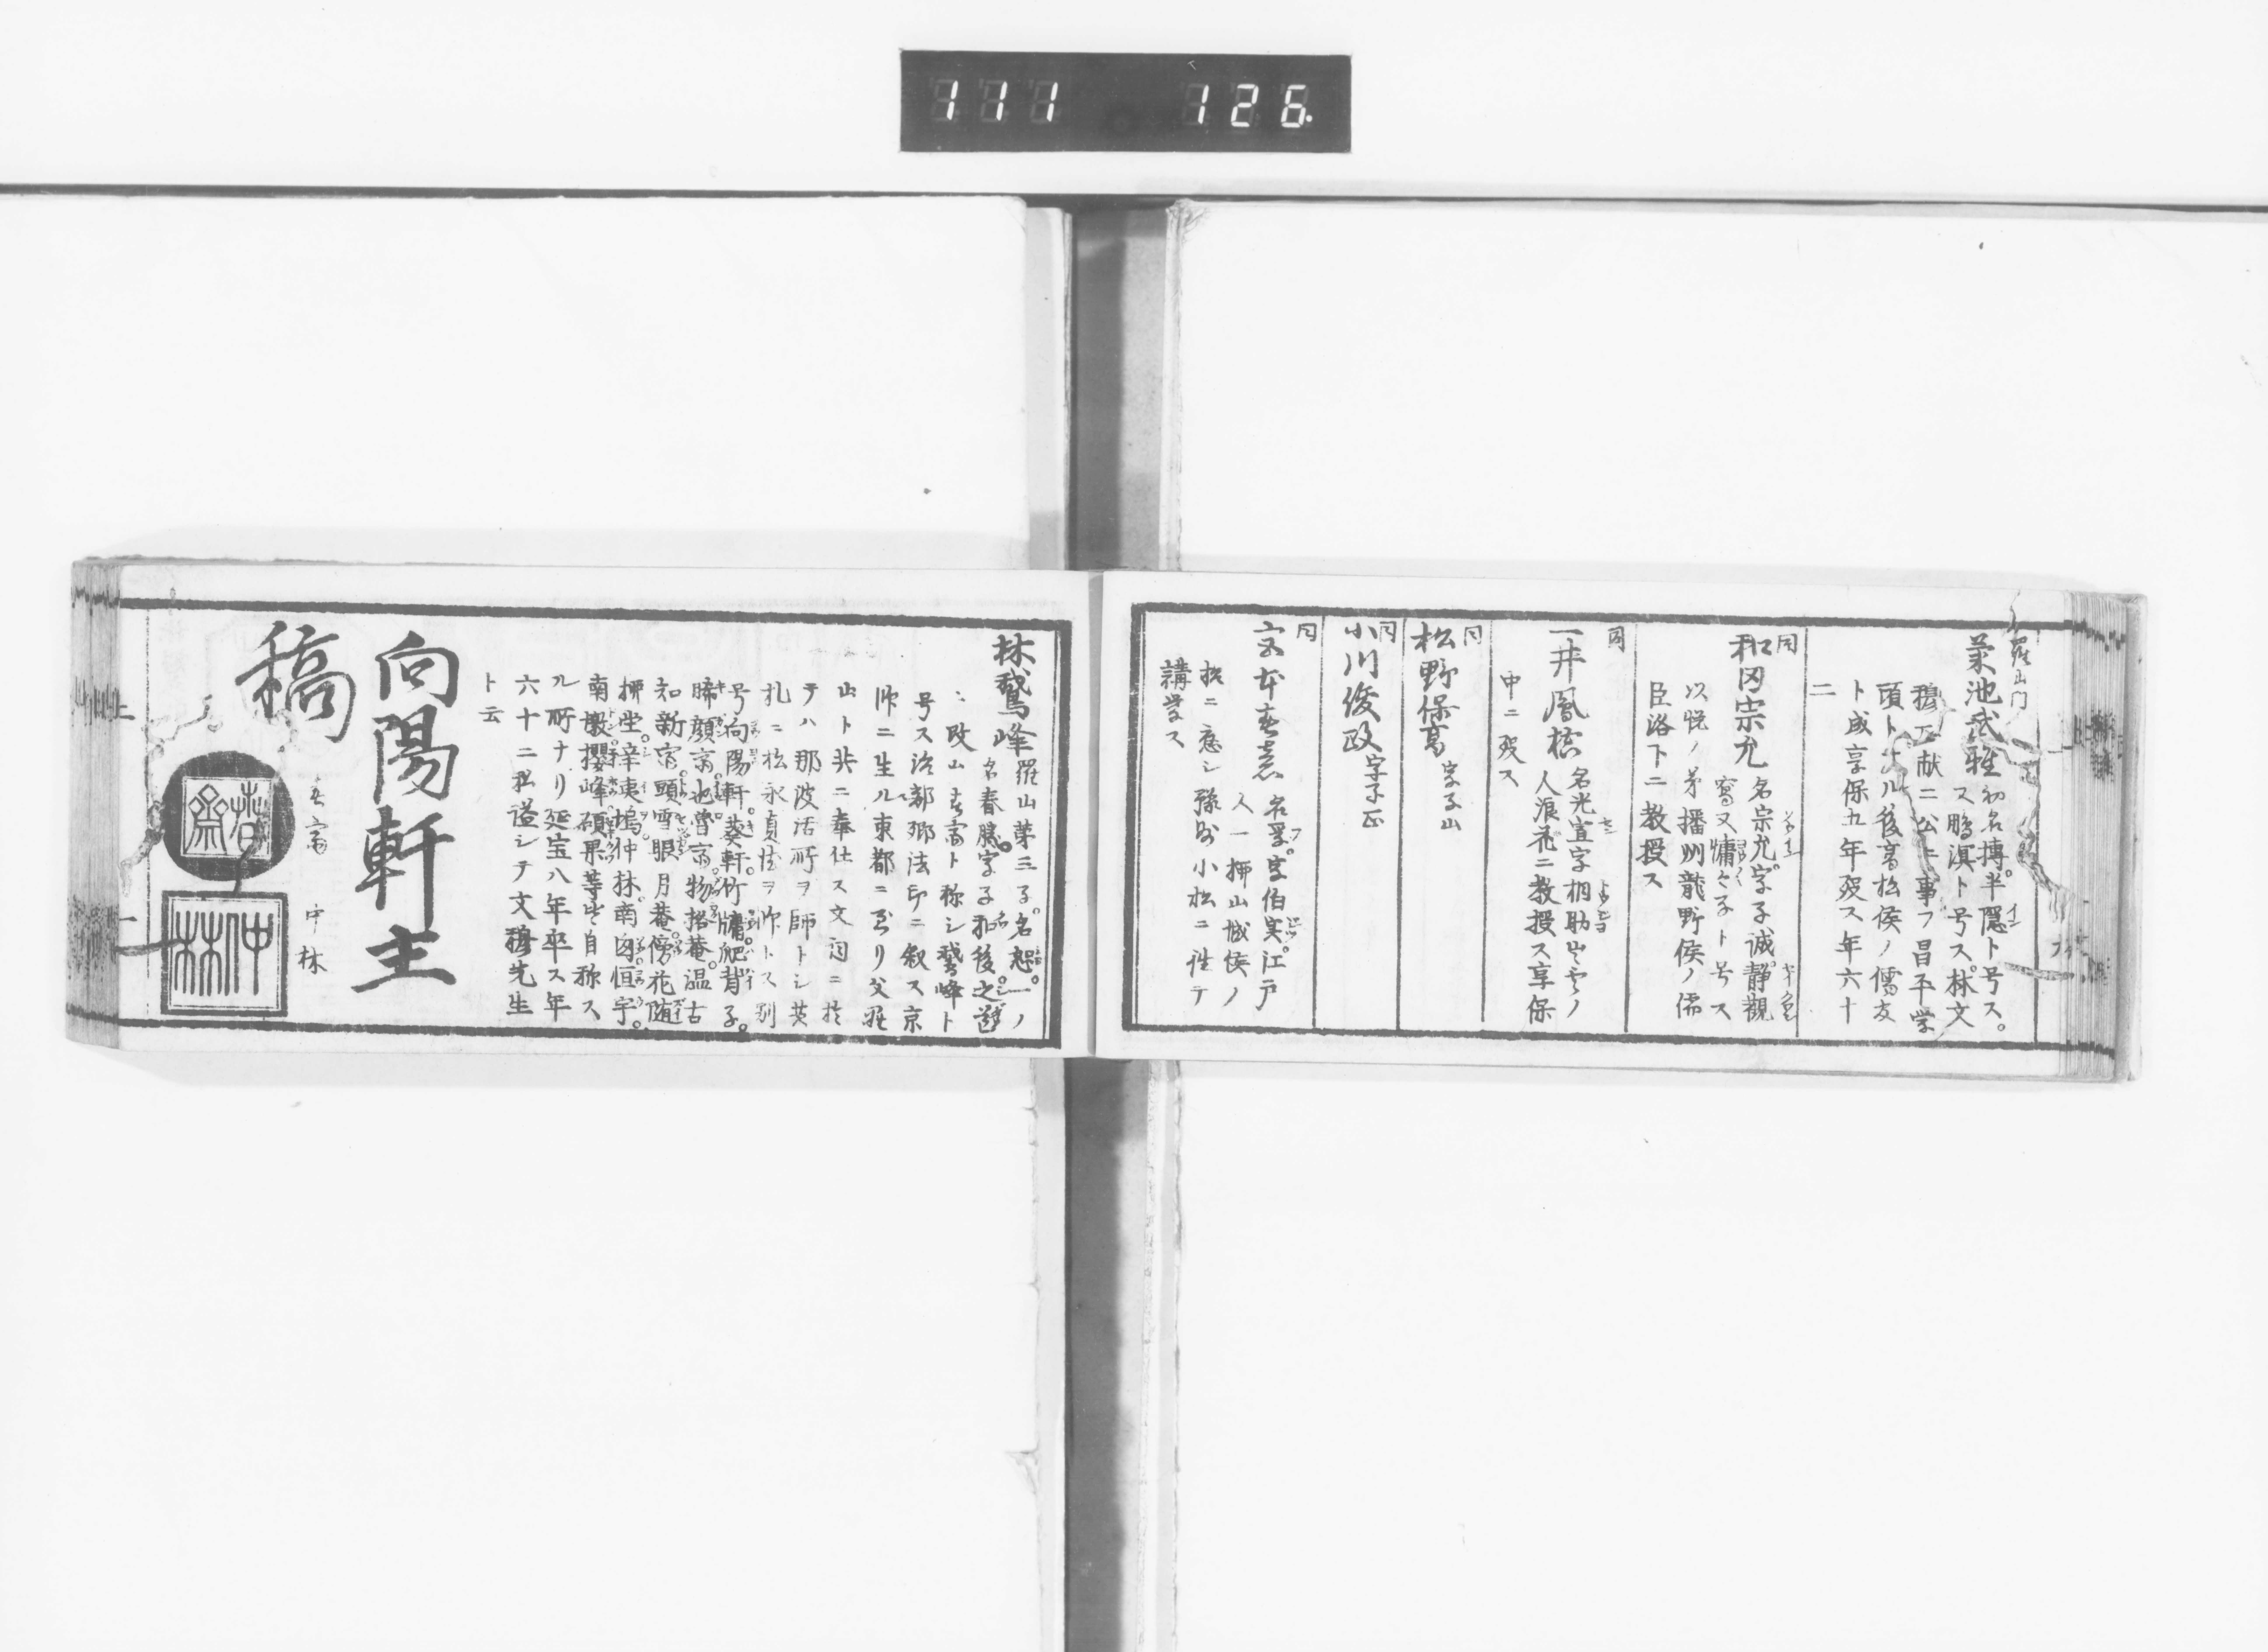 111 126
羅山門
菊池武雅 初名搏。半隠ト号ス。
ス鵬溟ト号ス。林文
穆正献二公ニ事フ昌平学
頭トナル後高松侯ノ儒友
ト成享保五年歿ス年六十
二
同
和岡宗允 名宗允。字子誠。静観
窩又慵々子ト号ス
以悦ノ弟播州龍野侯ノ儒
臣洛下ニ教授ス
同
一井鳳梧 名光宣字桐助
人浪花ニ教授ス享保
中ニ歿ス
同
松野保高 字子山
同
小川俊政 字子正
同
名孚。字伯実。江戸
人一柳山城侯ノ
招ニ応シ豫州小松ニ往テ
講学ス
林鵞峰 羅山第三子。名恕。一ノ
名春勝字子和後之道
ニ改ム春斎ト称シ鵞峰ト
号ス治部卿法印ニ叙ス京
師ニ生ル東都ニ至リ父羅
山ト共ニ奉仕ス文詞ニ於
テハ那波活所ヲ師トシ英
札ニ松永貞徳ヲ師トス別
号向陽軒。葵軒。竹牖。爬背子。
晞顔斎也魯斎。物格菴。温古
知新斎。頭雪眼月菴。傍花随
柳堂。辛夷塢。仲林。南囱。恒宇。
南墩。櫻峰。碩果等皆自称ス
ル所ナリ延宝八年卒ス年
六十二私諡シテ文穆先生
ト云
向陽軒主
稿
春斎
仲林
春斎
仲林